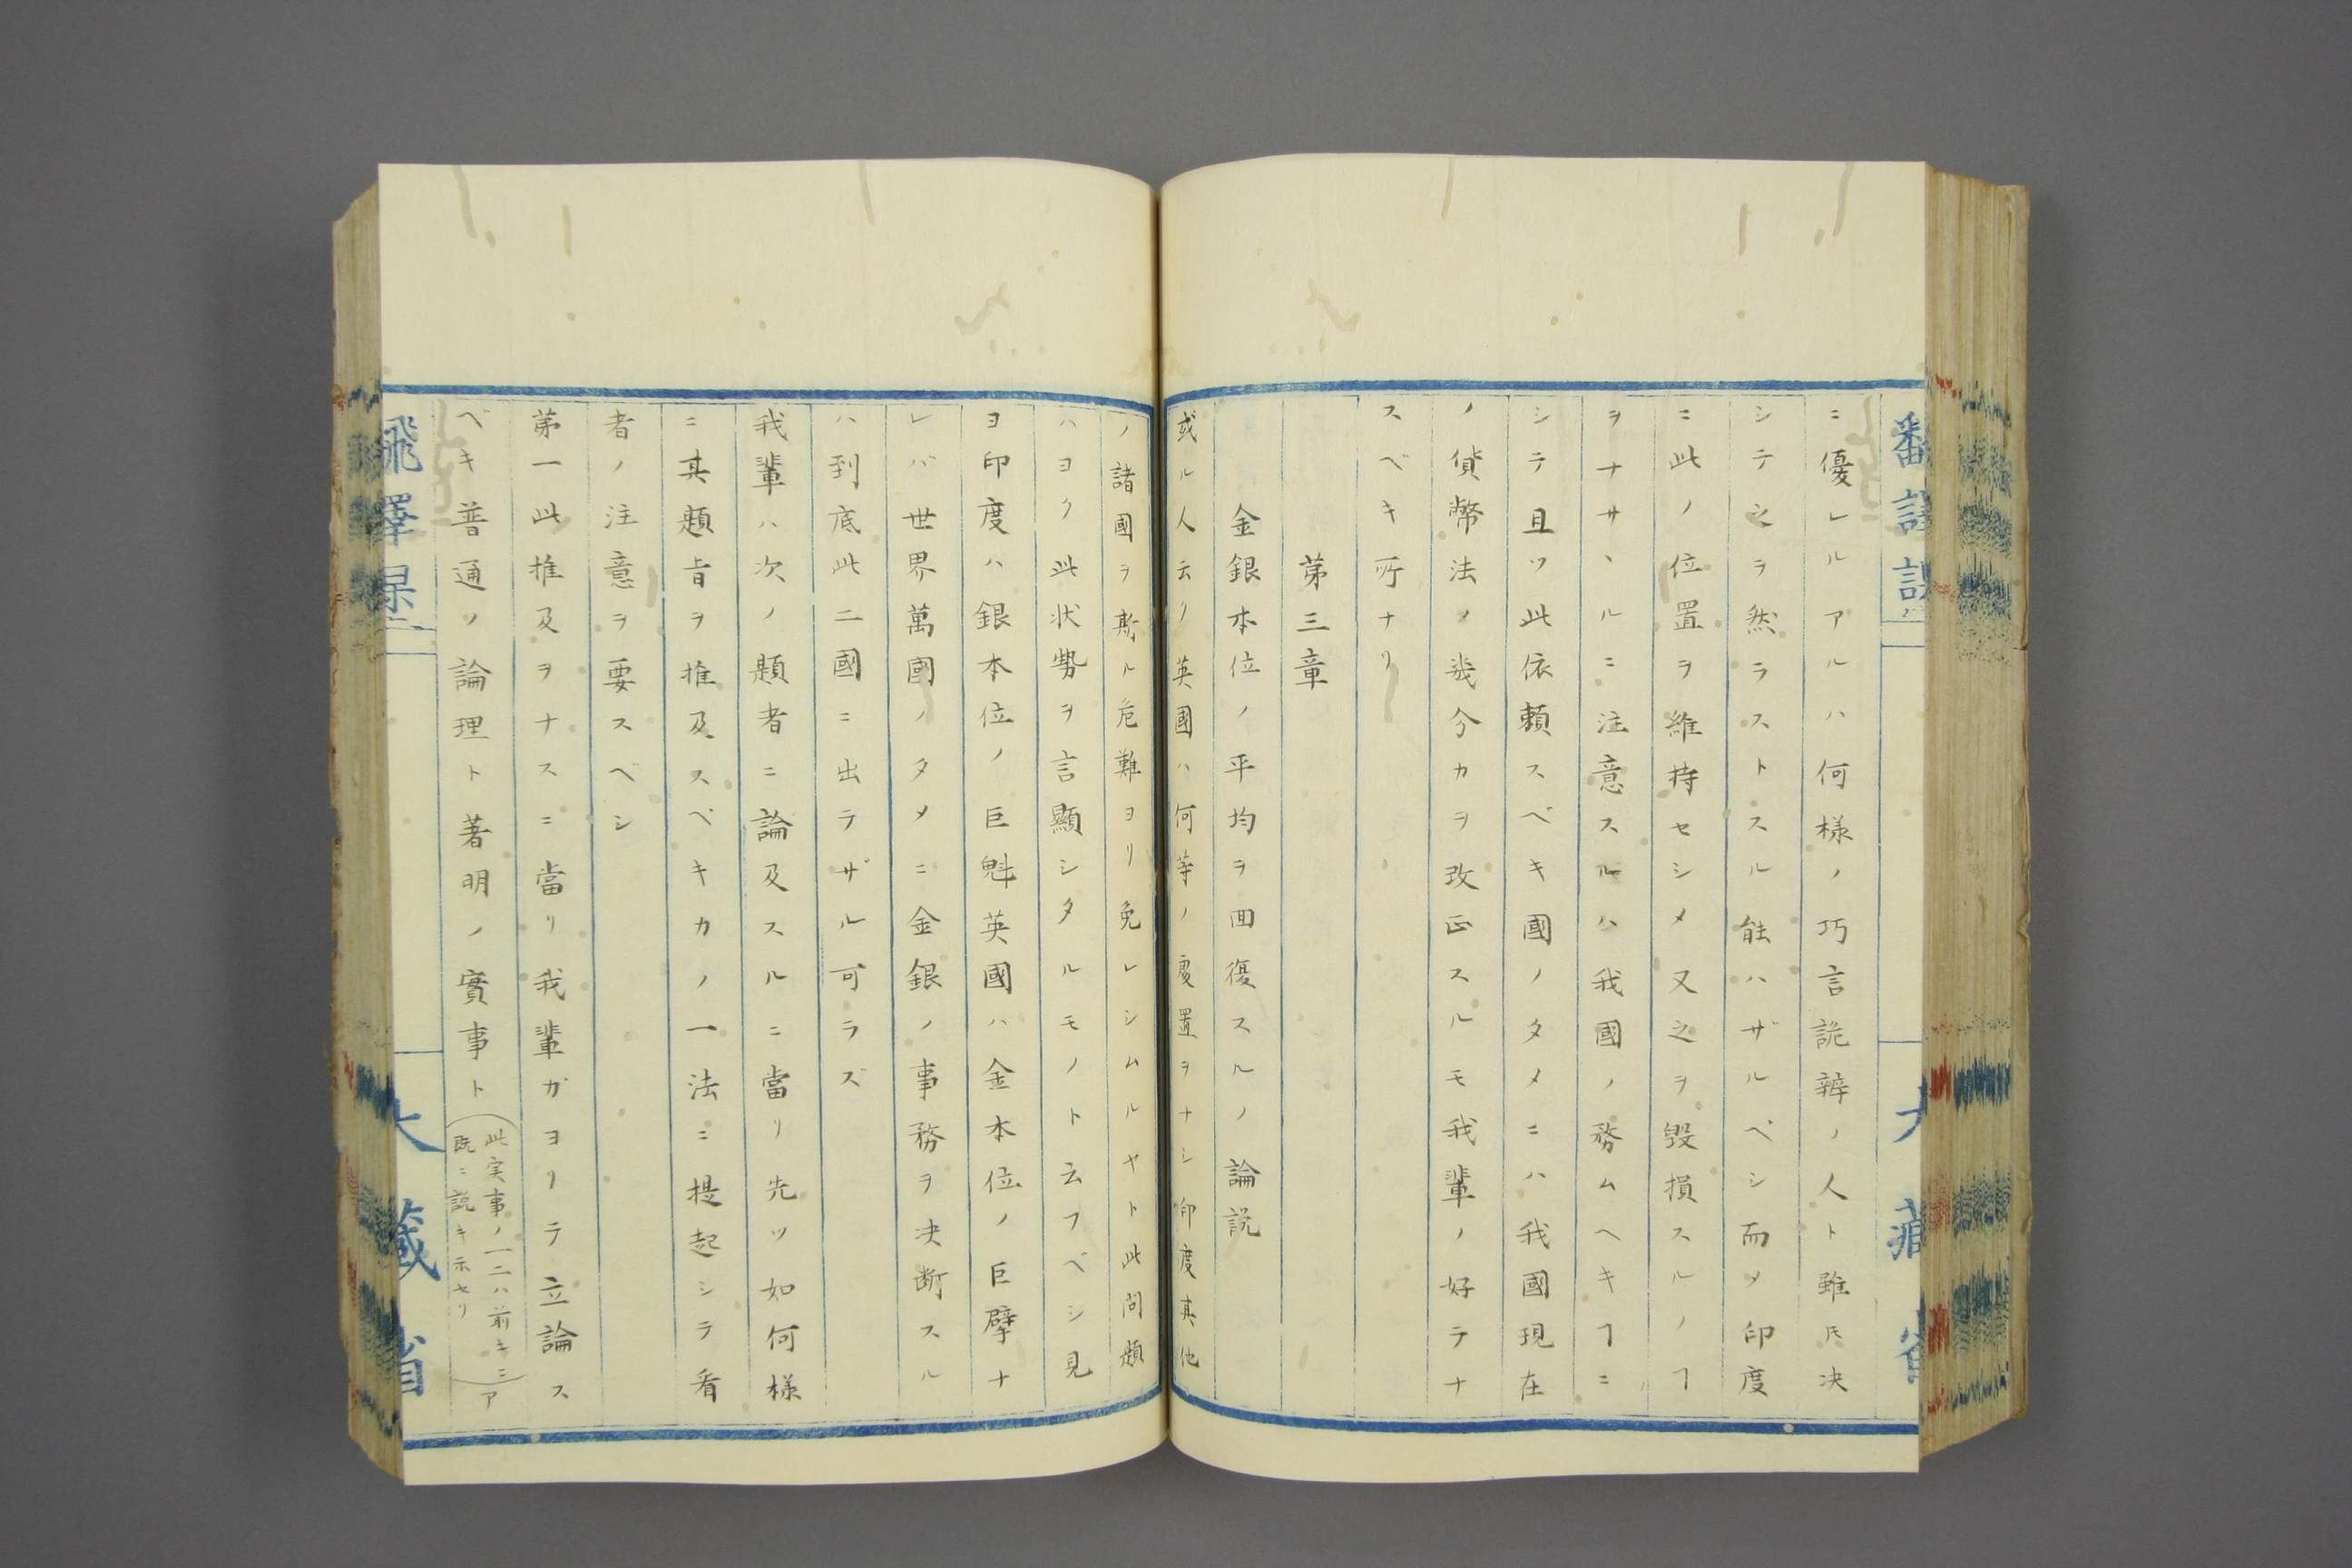 ニ優レルアルハ何様ノ巧言詭辨ノ人ト雖𪜈决
シテ之ヲ然ラストスル能ハザルベシ而メ印度
ニ此ノ位置ヲ維持セシメ又之ヲ毀損スルノヿ
ヲナサヽルニ注意スルハ我國ノ務ムヘキヿニ
シテ且ツ此依頼スベキ國ノタメニハ我國現在
ノ貨幣法ノ幾分カヲ改正スルモ我輩ノ好テナ
スベキ所ナリ
第三章
金銀本位ノ平均ヲ回復スルノ論説
或ル人云フ英國ハ何等ノ處置ヲナシ印度其他
ノ諸國ヲ斯ル危難ヨリ免レシムルヤト此問題
ハヨク此状勢ヲ言顯シタルモノト云フベシ見
ヨ印度ハ銀本位ノ巨魁英國ハ金本位ノ巨擘ナ
レバ世界萬國ノタメニ金銀ノ事務ヲ决断スル
ハ到底此二國ニ出テザル可ラズ
我輩ハ次ノ題者ニ論及スルニ當リ先ツ如何様
ニ其題旨ヲ推及スベキカノ一法ニ提起シテ看
者ノ注意ヲ要スベシ
第一此推及ヲナスニ當リ我輩ガヨリテ立論ス
ベキ普通ノ論理ト著明ノ實事ト(此実事ノ一二ハ前キニ
既ニ説キ示セリ)ア
大藏省